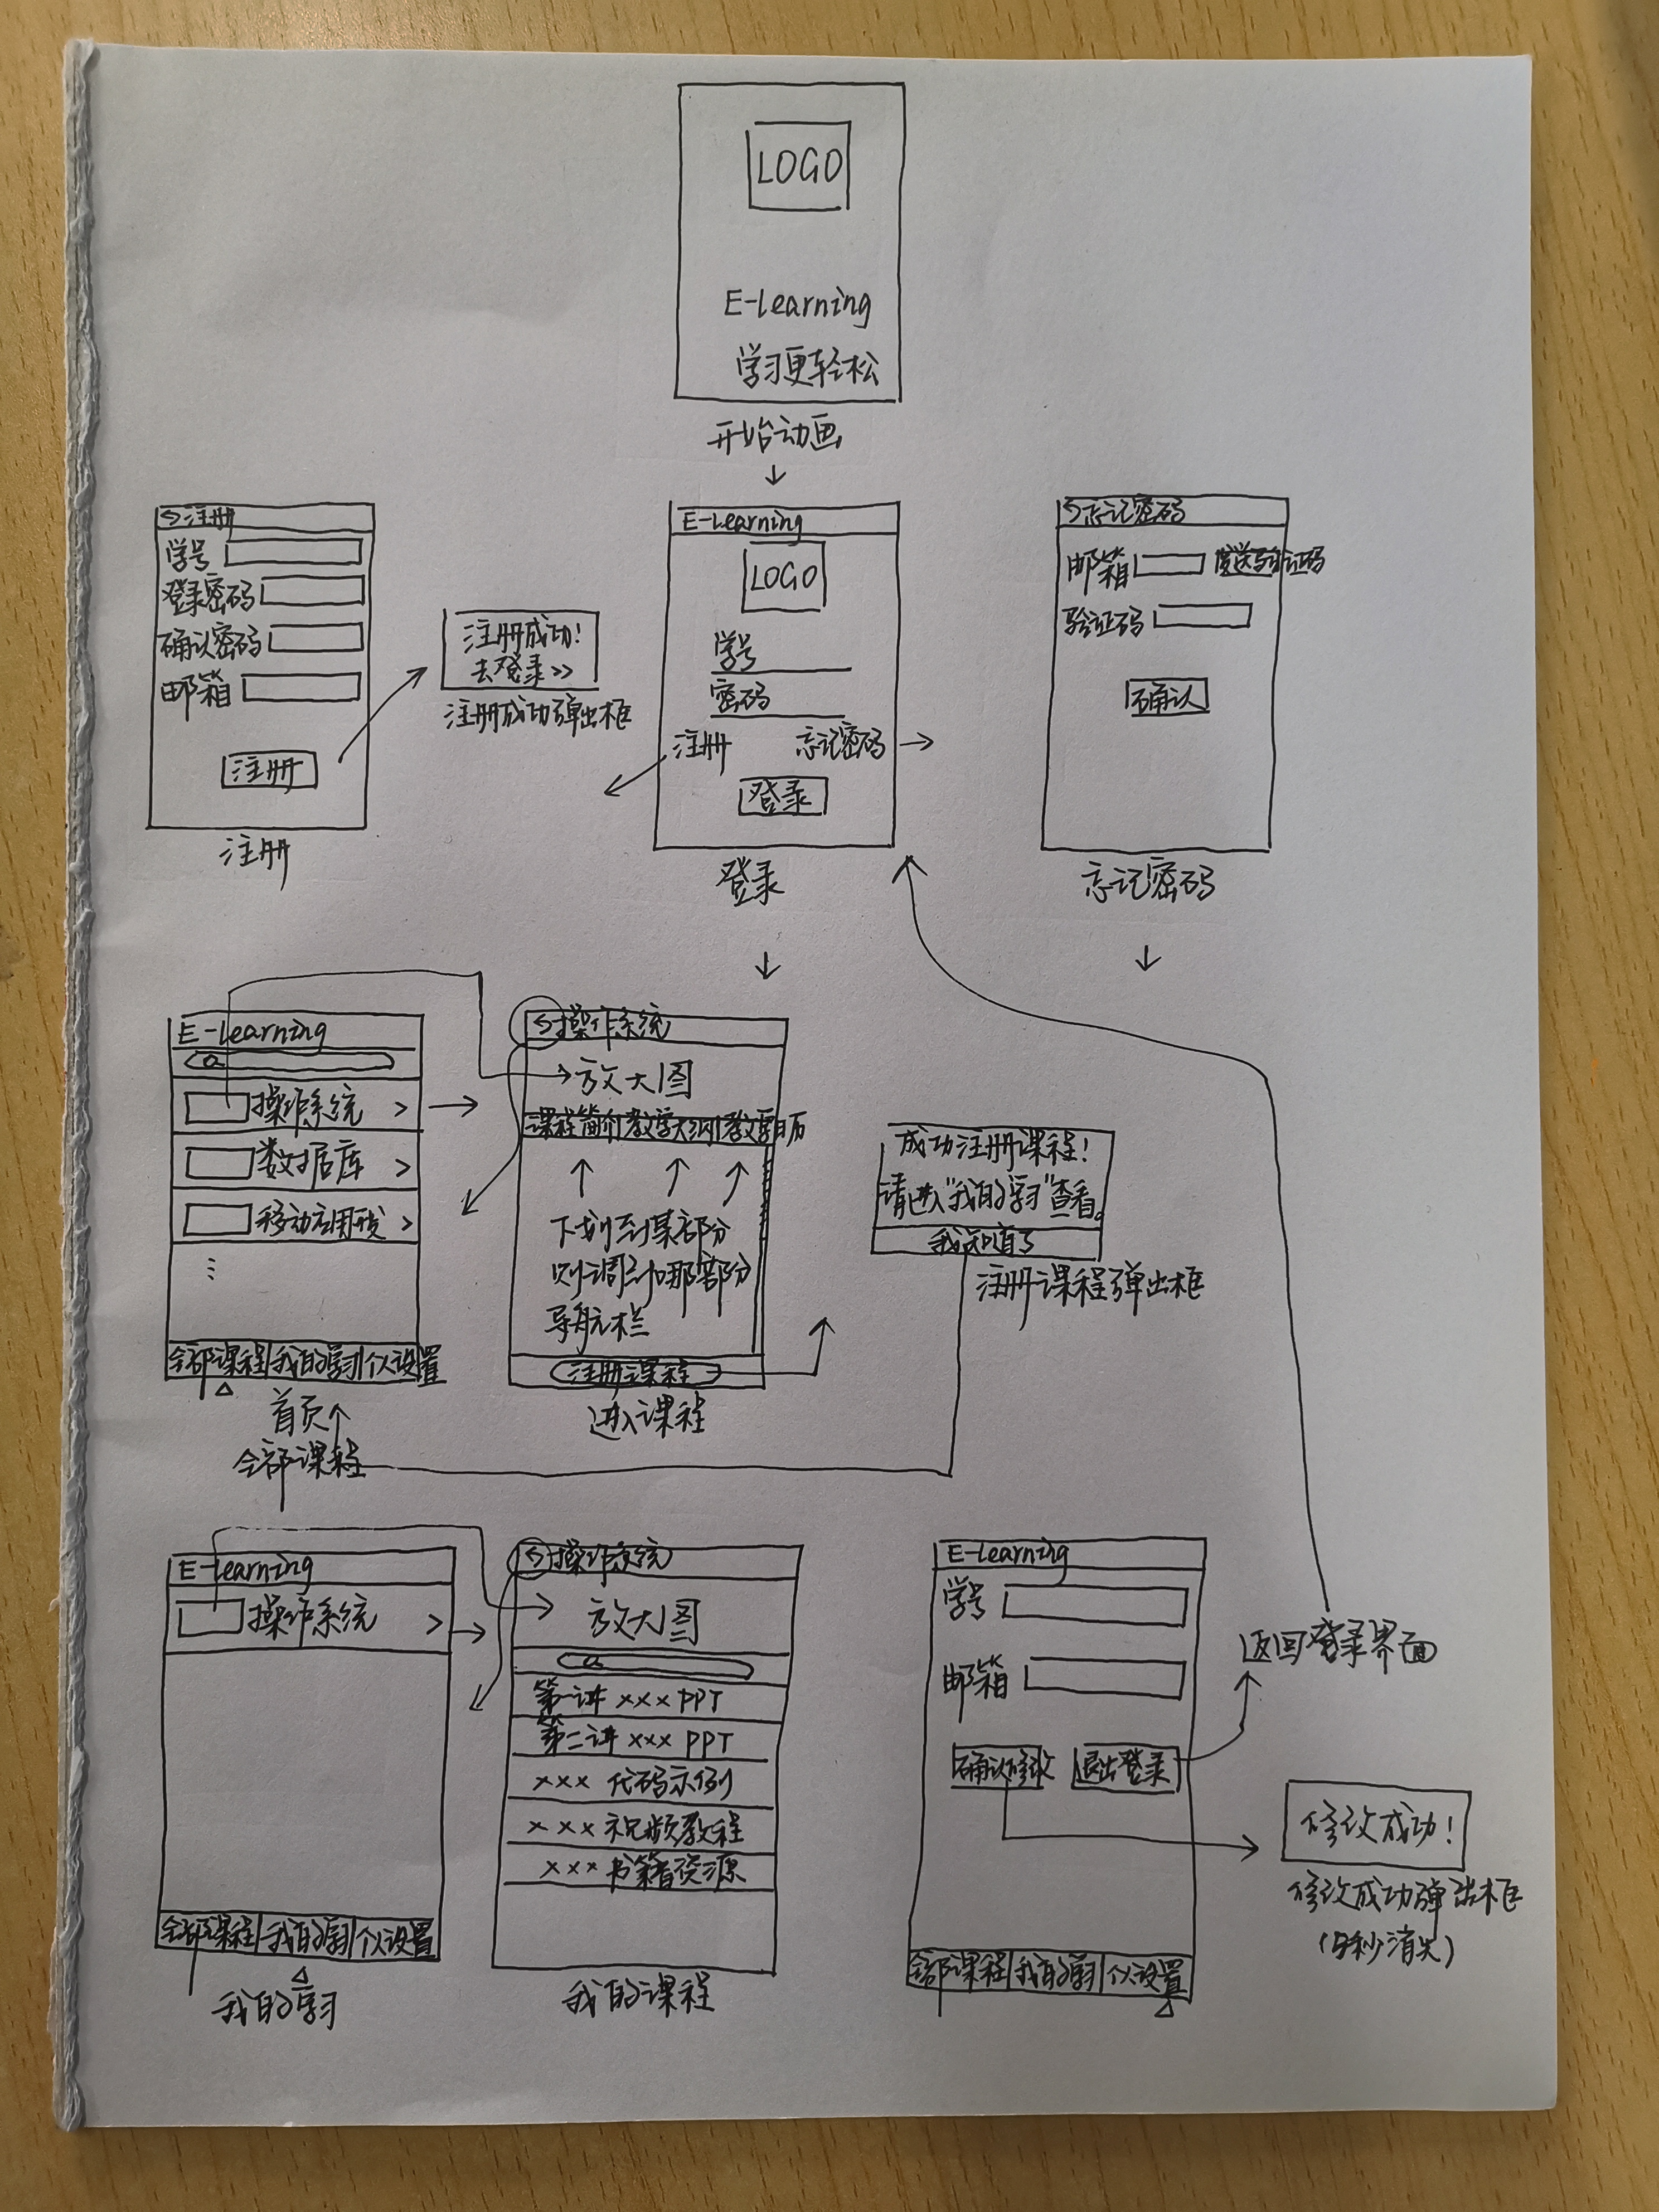 LOGO
E-Learning
学习更轻松
开始动画
注册
学号
登录密码
确认密码
邮箱
注册
注册
注册成功!
去登录>>
注册成功弹出框
E-Learning
LOGO
学号
密码
注册 忘记密码
登录
登录
忘记密码
邮箱 发送验证码
验证码
确认
忘记密码
E-Learning
操作系统 >
数据库 >
移动应用开发 >
全部课程 我的学习 个人设置
首页
全部课程
操作系统
放大图
课程简介 教学大纲 教学日历
下划到某部分
则调到哪部分
导航栏
注册课程
进入课程
成功注册课程!
请进入"我的学习"查看。
我知道了
注册课程弹出框
E-Learning
操作系统 >
全部课程 我的学习 个人设置
我的学习
操作系统
放大图
第一讲 ××× PPT
第二讲 ××× PPT
××× 代码示例
××× 视频教程
××× 书籍资源
我的课程
E-Learning
学号
邮箱
确认修改 退出登录
全部课程 我的学习 个人设置
返回登录界面
修改成功!
修改成功弹出框
秒消失)